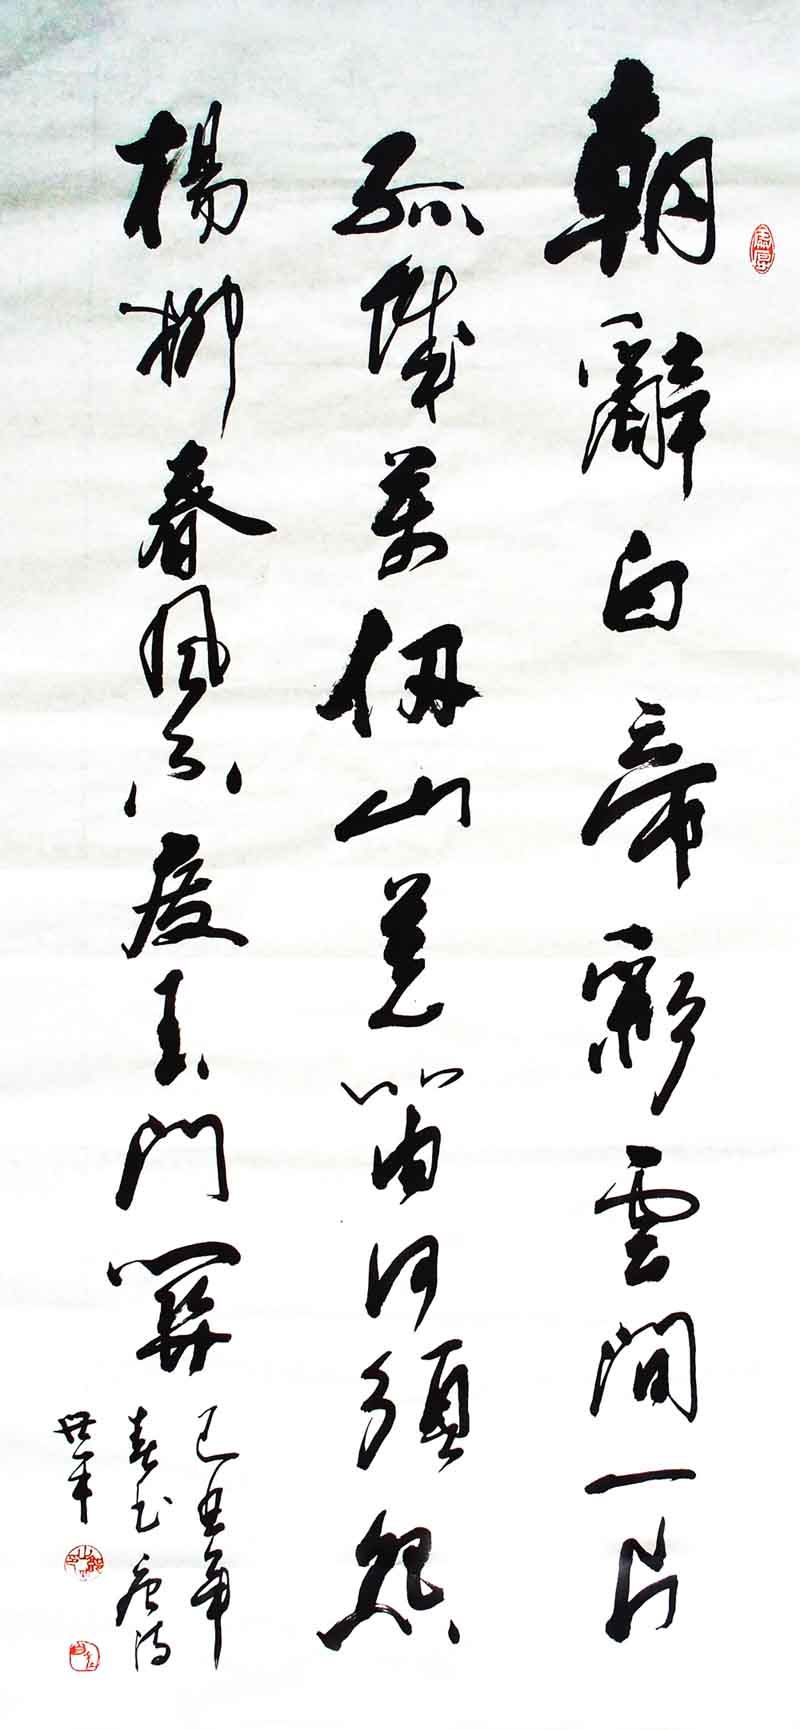 朝辭白帝彩雲間一片
孤城萬仞山羌笛何須怨
楊柳春風不度玉門關
己丑年
春书唐诗